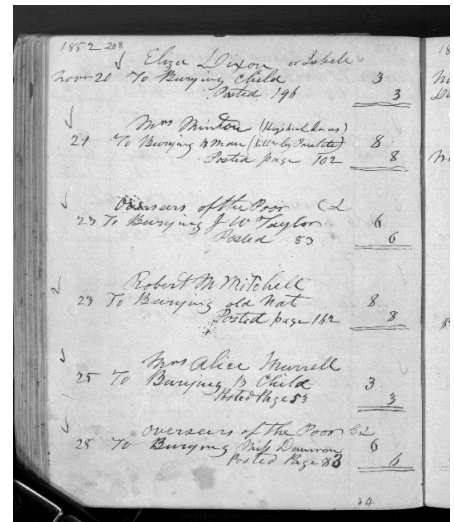 1852 208
Eliza Dixon or Isbell
Nov 20 To Burying Child 3
Posted 196 3
Mrs Minton
21 To Burying B man (Kill by Paulett) 8
Posted page 102 8
Overseers of the Poor C L
23 To Burying J W Taylor 6
Posted 83 6
Robert M Mitchell
23 To Burying old Nat 8
Posted page 142 8
Mrs Alice Murrell
25 To Burying B Child 3
Posted Page 53 3
overseers of the Poor C L
28 To Burying Miss 6
Posted Page 83 6
84
18